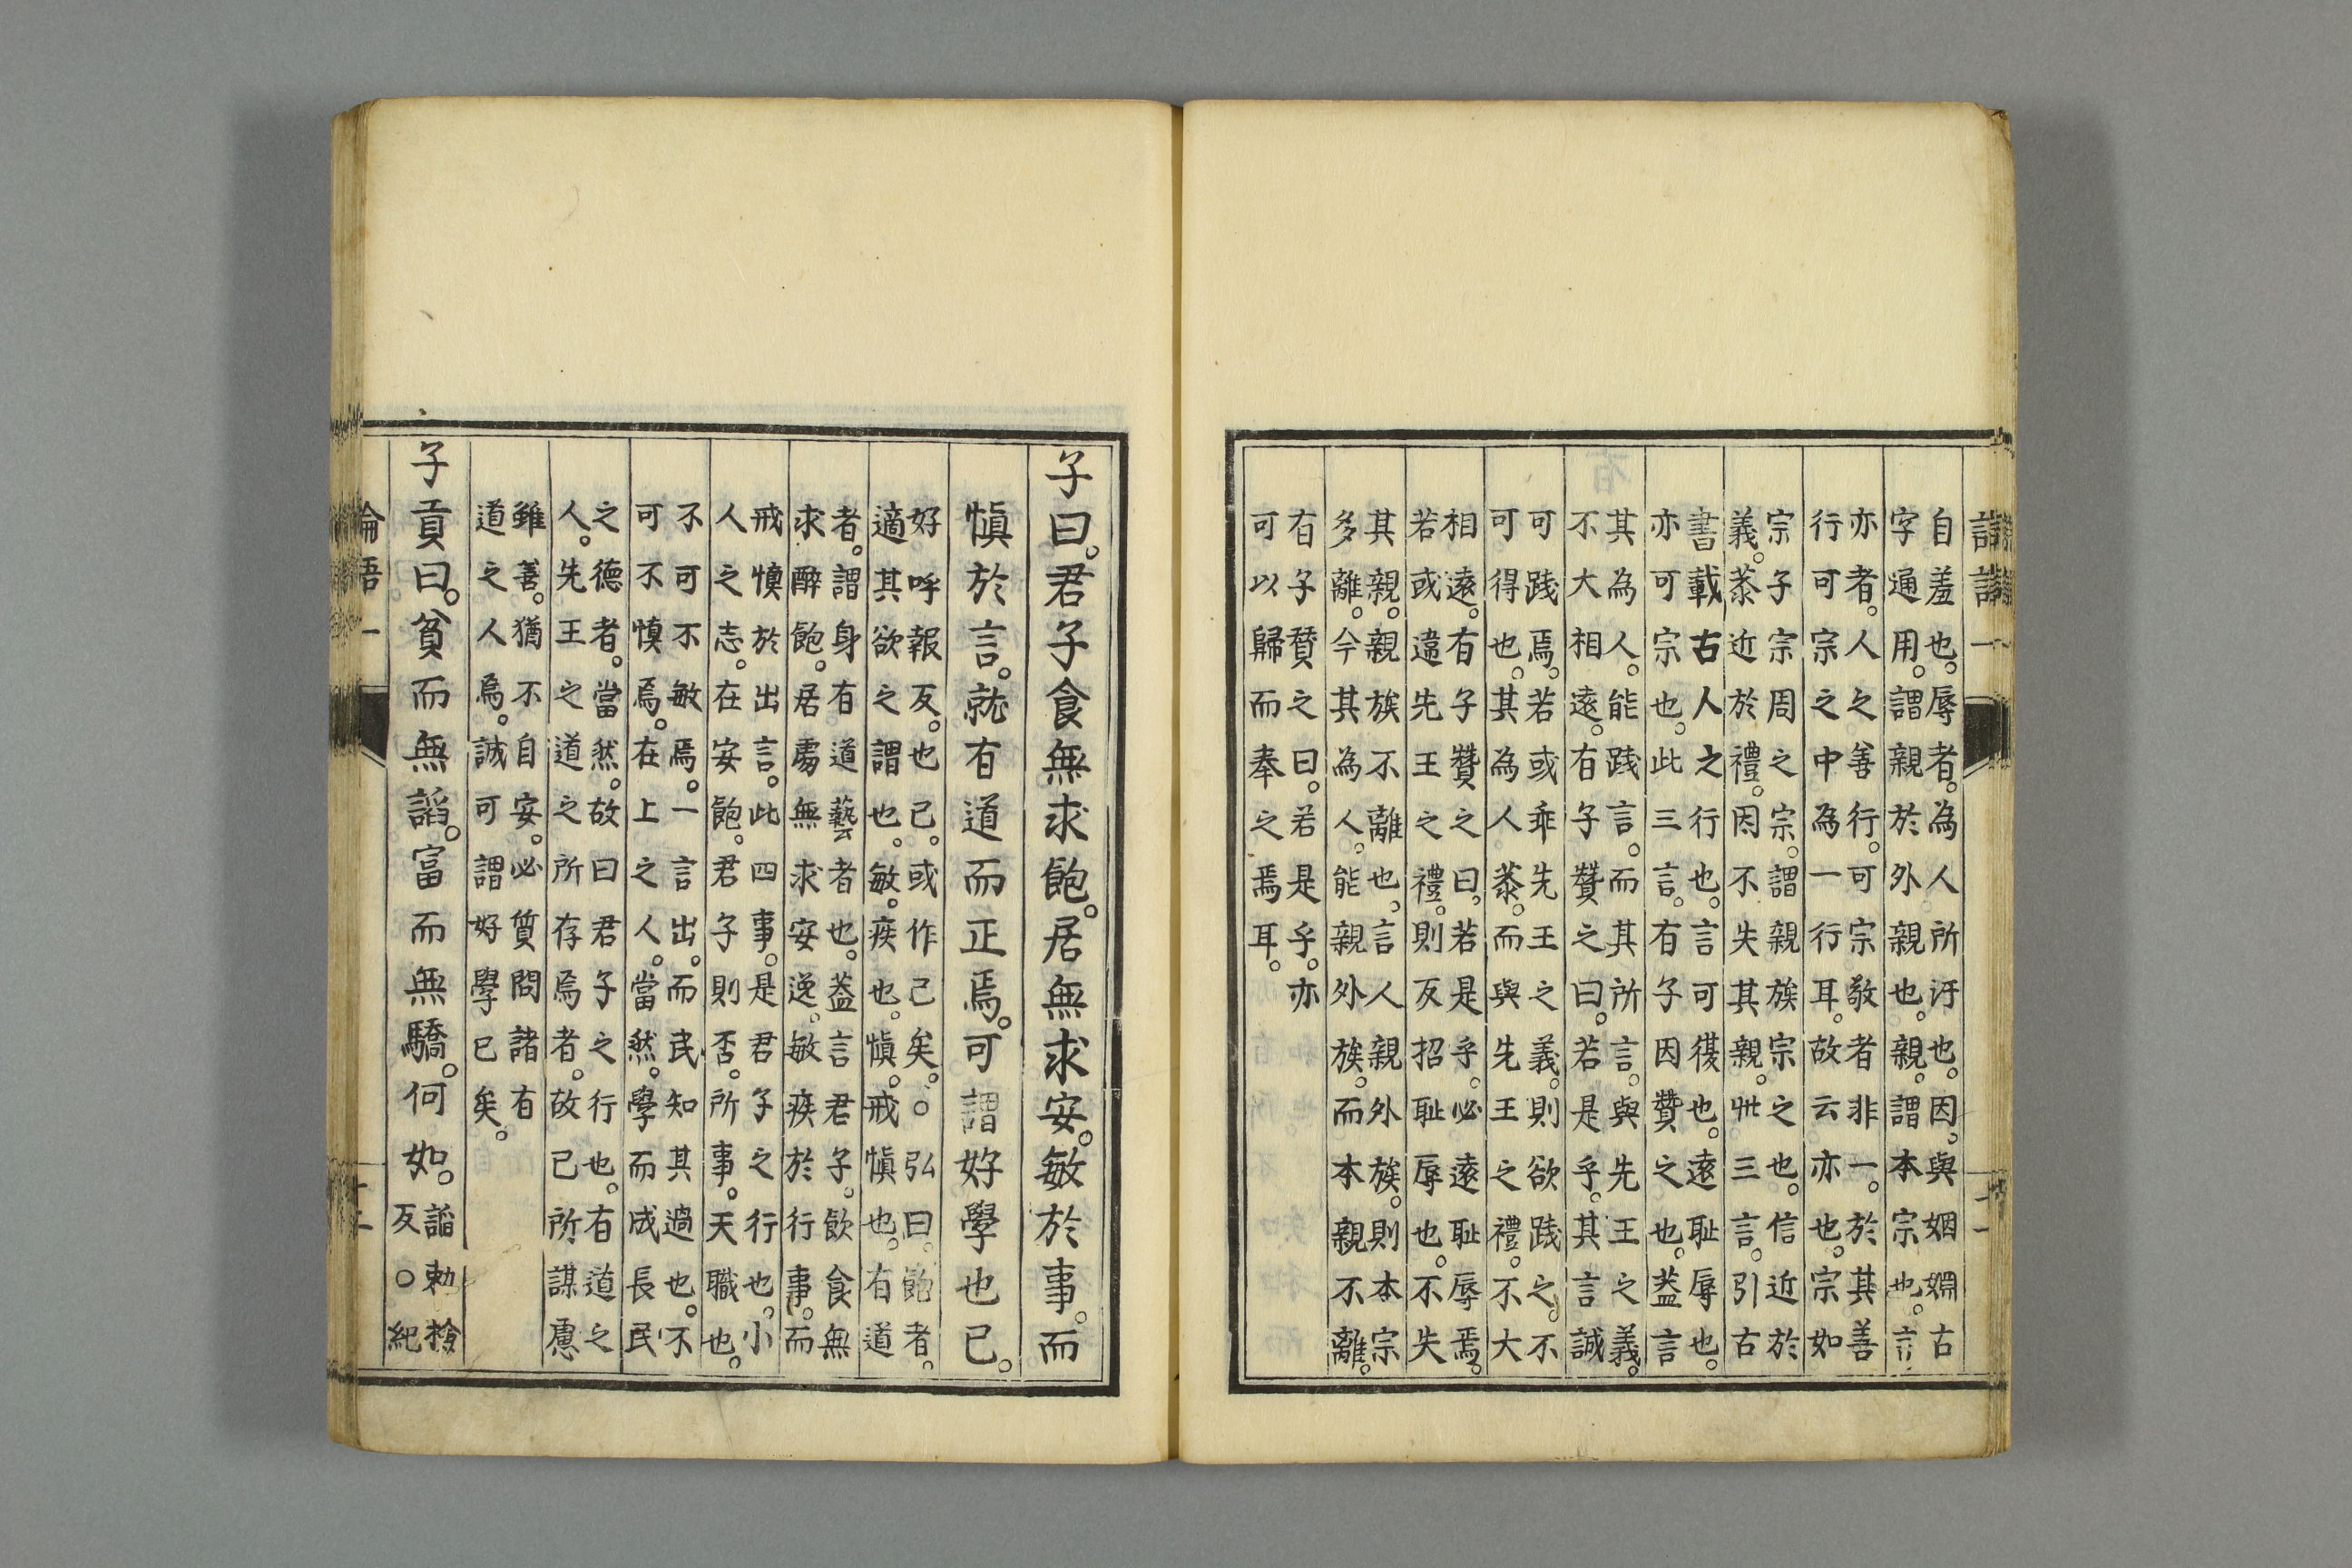 自羞也。辱者。為人所汙也。因。與姻婣古
字通用。謂親於外親也。親。謂本宗也。言
亦者。人之善行。可宗敬者非一。於其善
行可宗之中為一行耳。故云亦也。宗如
宗子宗周之宗。謂親族宗之也。信近於
義。恭近於禮。因不失其親。此三言。引古
書載古人之行也。言可復也。遠耻辱也。
亦可宗也。此三言。有子因贊之也。蓋言
其為人。能踐言。而其所言。與先王之義。
不大相遠。有子贊之曰。若是乎。其言誠
可踐焉。若或乖先王之義。則欲踐之。不
可得也。其為人恭。而與先王之禮。不大
相遠。有子贊之曰。若是乎。必遠耻辱焉。
若或違先王之禮。則反招耻辱也。不失
其親。親族不離也。言人親外族。則本宗
多離。今其為人。能親外族。而本親不離。
有子贊之曰。若是乎。亦
可以歸而奉之焉耳。
子曰。君子食無求飽。居無求安。敏於事。而
慎於言。就有道而正焉。可謂好學也已。
好呼報反。也已。或作已矣。○弘曰。飽者。
適其欲之謂也。敏。疾也。慎。戒慎也。有道
者。謂身有道藝者也。蓋言君子。飲食無
求醉飽。居處無求安逸。敏疾於行事。而
戒慎於出言。此四事。是君子之行也。小
人之志。在安飽。君子則否。所事。天職也。
不可不敏焉。一言出。而民知其過也。不
可不慎焉。在上之人。當然。學而成長民
之德者。當然。故曰君子之行也。有道之
人。先王之道之所存焉者。故己所謀慮
雖善。猶不自安。必質問諸有
道之人焉。誠可謂好學已矣。
子貢曰。貧而無諂。富而無驕。何如。諂勅撿
反○紀
論語一